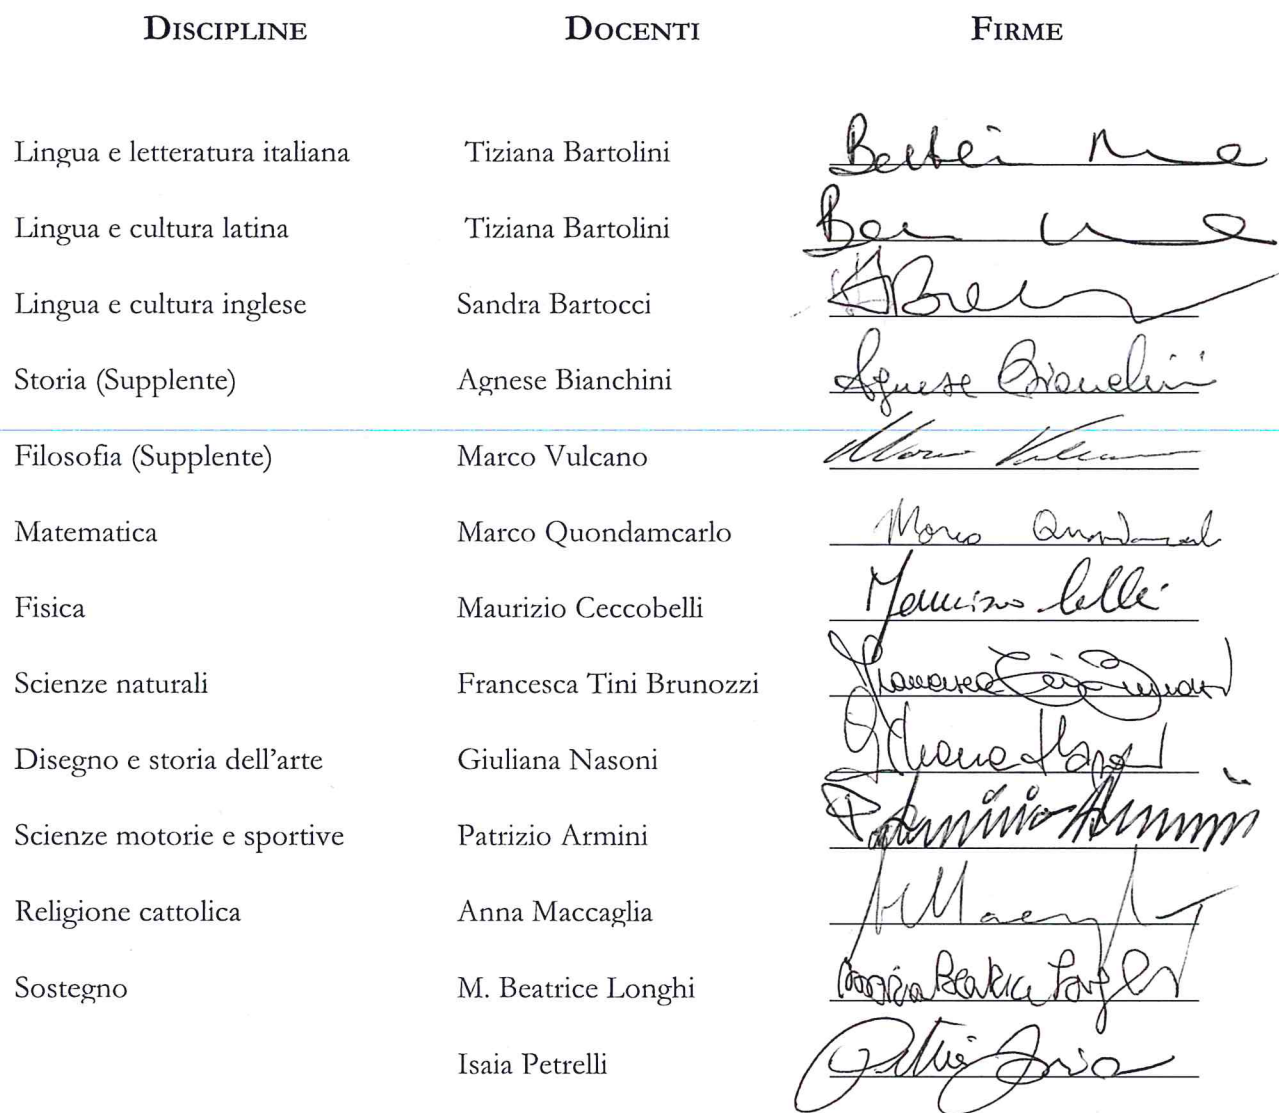 DISCIPLINE DOCENTI FIRME
Lingua e letteratura italiana Tiziana Bartolini
Lingua e cultura latina Tiziana Bartolini
Lingua e cultura inglese Sandra Bartocci
Storia (Supplente) Agnese Bianchini Agnese Bianchini
Filosofia (Supplente) Marco Vulcano Marco Vulcano
Matematica Marco Quondamcarlo Marco
Fisica Maurizio Ceccobelli Maurizio
Scienze naturali Francesca Tini Brunozzi Francesca Tini
Disegno e storia dell'arte Giuliana Nasoni
Scienze motorie e sportive Patrizio Armini Armini
Religione cattolica Anna Maccaglia
Sostegno M. Beatrice Longhi Maria Beatrice Longhi
Isaia Petrelli